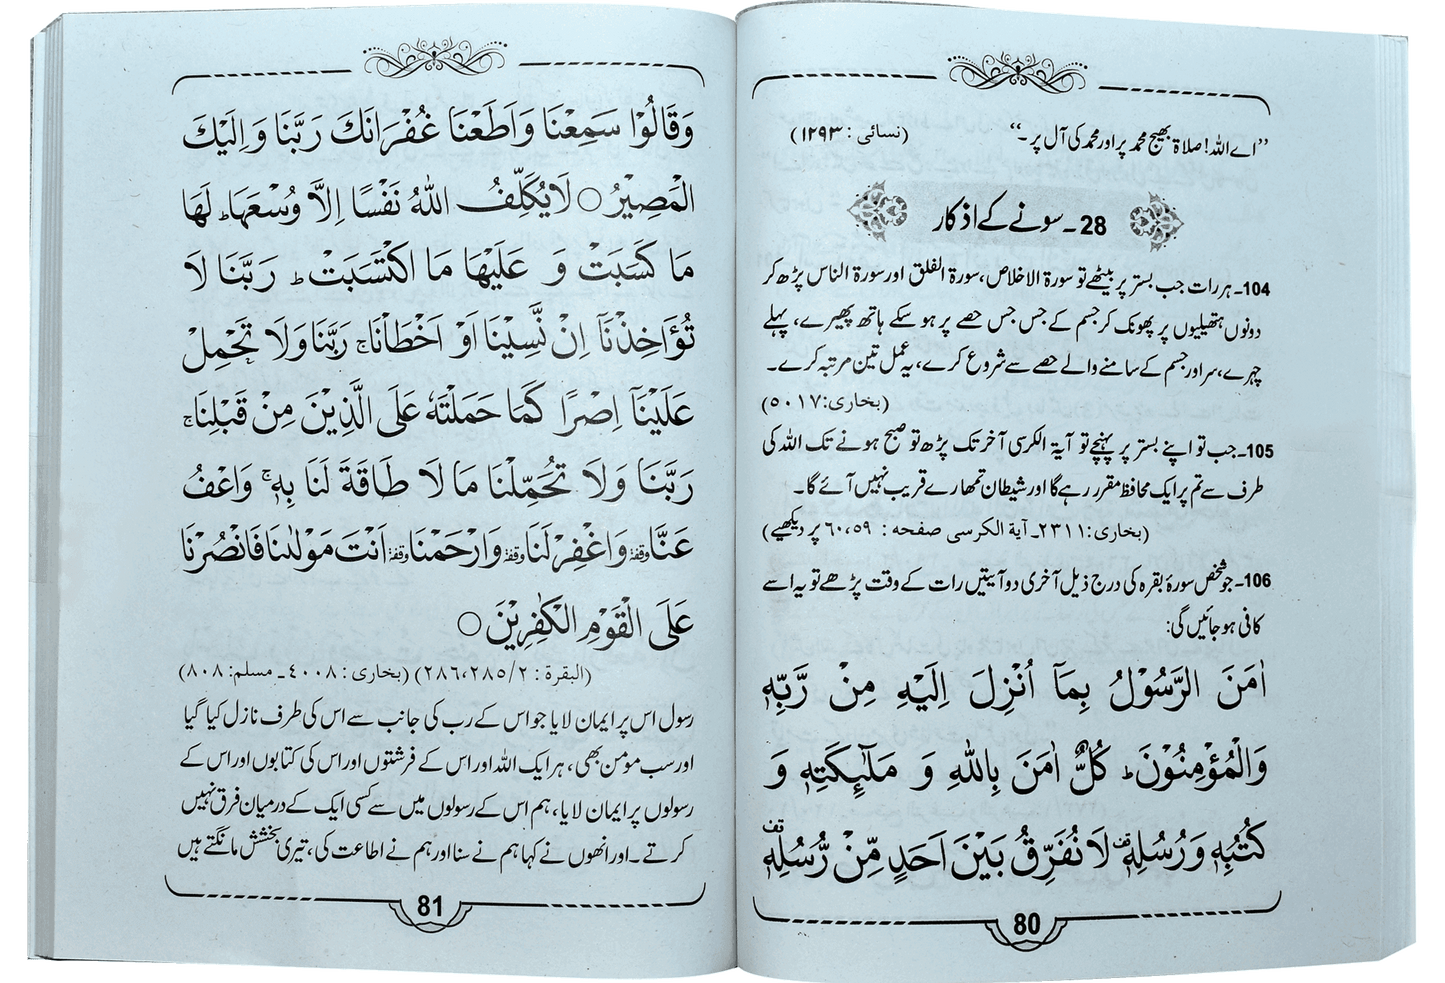 ”اے اللہ! صلاۃ بھیج محمد پر اور محمد کی آل پر۔“ (نسائی : ۱۲۹۳)
28۔ سونے کے اذکار
104۔ ہر رات جب بستر پر بیٹھے تو سورۃ الاخلاص، سورۃ الفلق اور سورۃ الناس پڑھ کر
دونوں ہتھیلیوں پر پھونک کر جسم کے جس جس حصے پر ہو سکے ہاتھ پھیرے، پہلے
چہرے، سر اور جسم کے سامنے والے حصے سے شروع کرے، یہ عمل تین مرتبہ کرے۔
(بخاری: ۵۰۱۷)
105۔ جب تو اپنے بستر پر پہنچے تو آیۃ الکرسی آخر تک پڑھ تو صبح ہونے تک اللہ کی
طرف سے تم پر ایک محافظ مقرر رہے گا اور شیطان تمھارے قریب نہیں آئے گا۔
(بخاری: ۲۳۱۱۔ آیة الکرسی صفحہ : ۶۰،۵۹ پر دیکھیے)
106۔ جو شخص سورۂ بقرہ کی درج ذیل آخری دو آیتیں رات کے وقت پڑھے تو یہ اسے
کافی ہو جائیں گی:
اٰمَنَ الرَّسُوْلُ بِمَاۤ اُنْزِلَ اِلَيْهِ مِنْ رَّبِّهٖ
وَالْمُؤْمِنُوْنَ ؕ كُلٌّ اٰمَنَ بِاللّٰهِ وَ مَلٰٓىِٕكَتِهٖ وَ
كُتُبِهٖ وَرُسُلِهٖ ۫ لَا نُفَرِّقُ بَيْنَ اَحَدٍ مِّنْ رُّسُلِهٖ ۫
80
وَقَالُوْا سَمِعْنَا وَاَطَعْنَا غُفْرَانَكَ رَبَّنَا وَاِلَيْكَ
الْمَصِيْرُ ○ لَا يُكَلِّفُ اللّٰهُ نَفْسًا اِلَّا وُسْعَهَا ؕ لَهَا
مَا كَسَبَتْ وَ عَلَيْهَا مَا اكْتَسَبَتْ ؕ رَبَّنَا لَا
تُؤَاخِذْنَاۤ اِنْ نَّسِيْنَاۤ اَوْ اَخْطَاْنَا ۚ رَبَّنَا وَلَا تَحْمِلْ
عَلَيْنَاۤ اِصْرًا كَمَا حَمَلْتَهٗ عَلَى الَّذِيْنَ مِنْ قَبْلِنَا ۚ
رَبَّنَا وَلَا تُحَمِّلْنَا مَا لَا طَاقَةَ لَنَا بِهٖ ۚ وَاعْفُ
عَنَّا وقفة وَاغْفِرْ لَنَا وقفة وَارْحَمْنَا وقفة اَنْتَ مَوْلٰىنَا فَانْصُرْنَا
عَلَى الْقَوْمِ الْكٰفِرِيْنَ ○
(البقرة : ۲۸۶،۲۸۵/۲) (بخاری : ۴۰۰۸۔ مسلم: ۸۰۸)
رسول اس پر ایمان لایا جو اس کے رب کی جانب سے اس کی طرف نازل کیا گیا
اور سب مومن بھی، ہر ایک اللہ اور اس کے فرشتوں اور اس کی کتابوں اور اس کے
رسولوں پر ایمان لایا، ہم اس کے رسولوں میں سے کسی ایک کے درمیان فرق نہیں
کرتے۔ اور انھوں نے کہا ہم نے سنا اور ہم نے اطاعت کی، تیری بخشش مانگتے ہیں
81